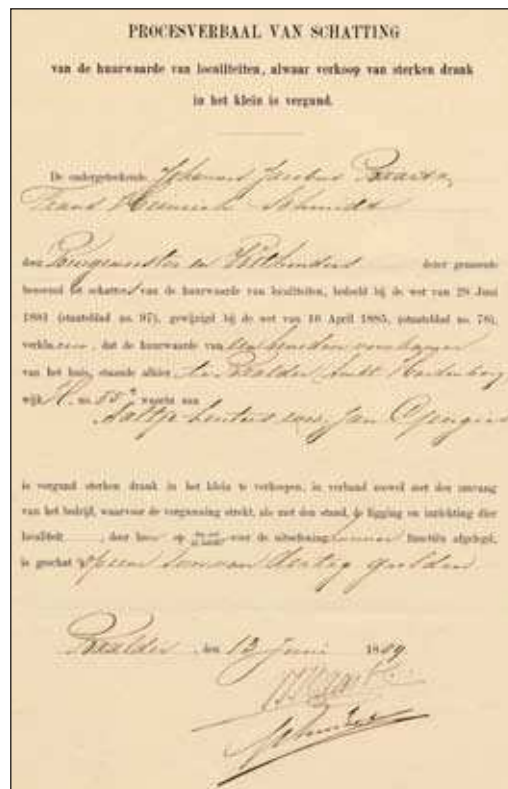 PROCESVERBAAL VAN SCHATTING
van de huurwaarde van localiteiten, alwaar verkoop van sterken drank
in het klein is vergund.
De ondergeteekende Johannes Jacobus
Frans Heinrich Schmidt
door Burgemeester en Wethouders dezer gemeente
benoemd tot schatters van de huurwaarde van localiteiten, bedoeld bij de wet van 28 Juni
1881 (staatsblad no. 97), gewijzigd bij de wet van 16 April 1885, (staatsblad no. 78),
verklaren, dat de huurwaarde van
van het huis, staande alhier te Baalder Ambt Hardenberg
wijk no. 55 waarin aan
Jan
is vergund sterken drank in het klein te verkoopen, in verband zoowel met den omvang
van het bedrijf, waarvoor de vergunning strekt, als met den stand, de ligging en inrichting dier
localiteit, door hen op voor de uitoefening hunner functiën afgelegd,
is geschat op eene som van dertig gulden
Baalder, den 13 Juni 1889
Schmidt